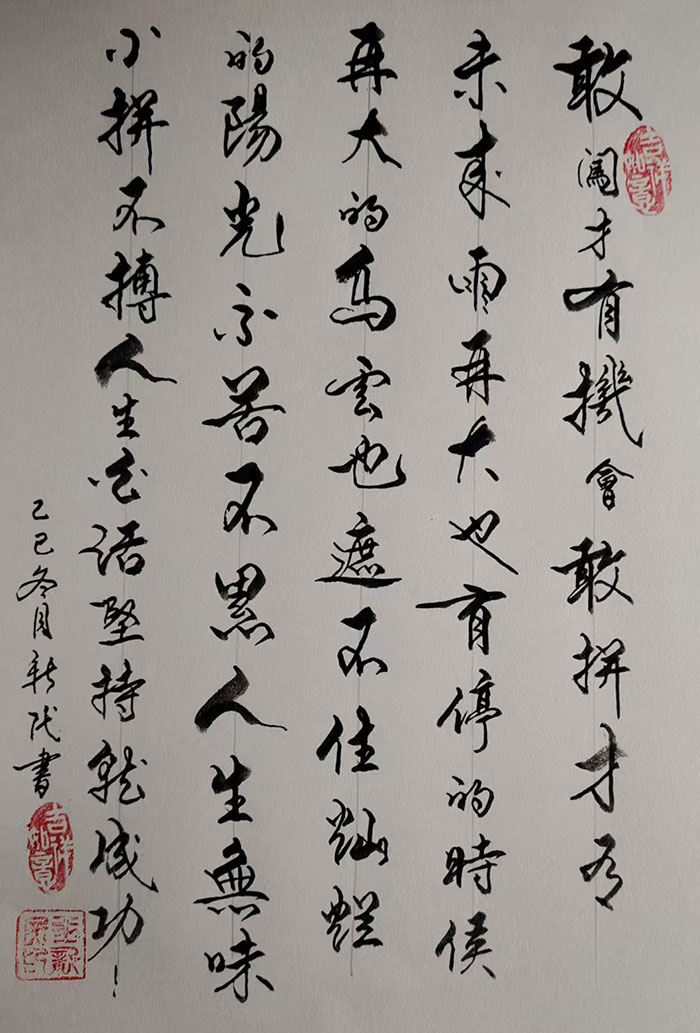 敢闖才有機會敢拼才有
未來雨再大也有停的時侯
再大的烏雲也遮不住燦爛
的陽光不苦不累人生無味
不拼不搏人生白活堅持就成功！
乙巳冬月新民書
吉祥如意
吉祥如意